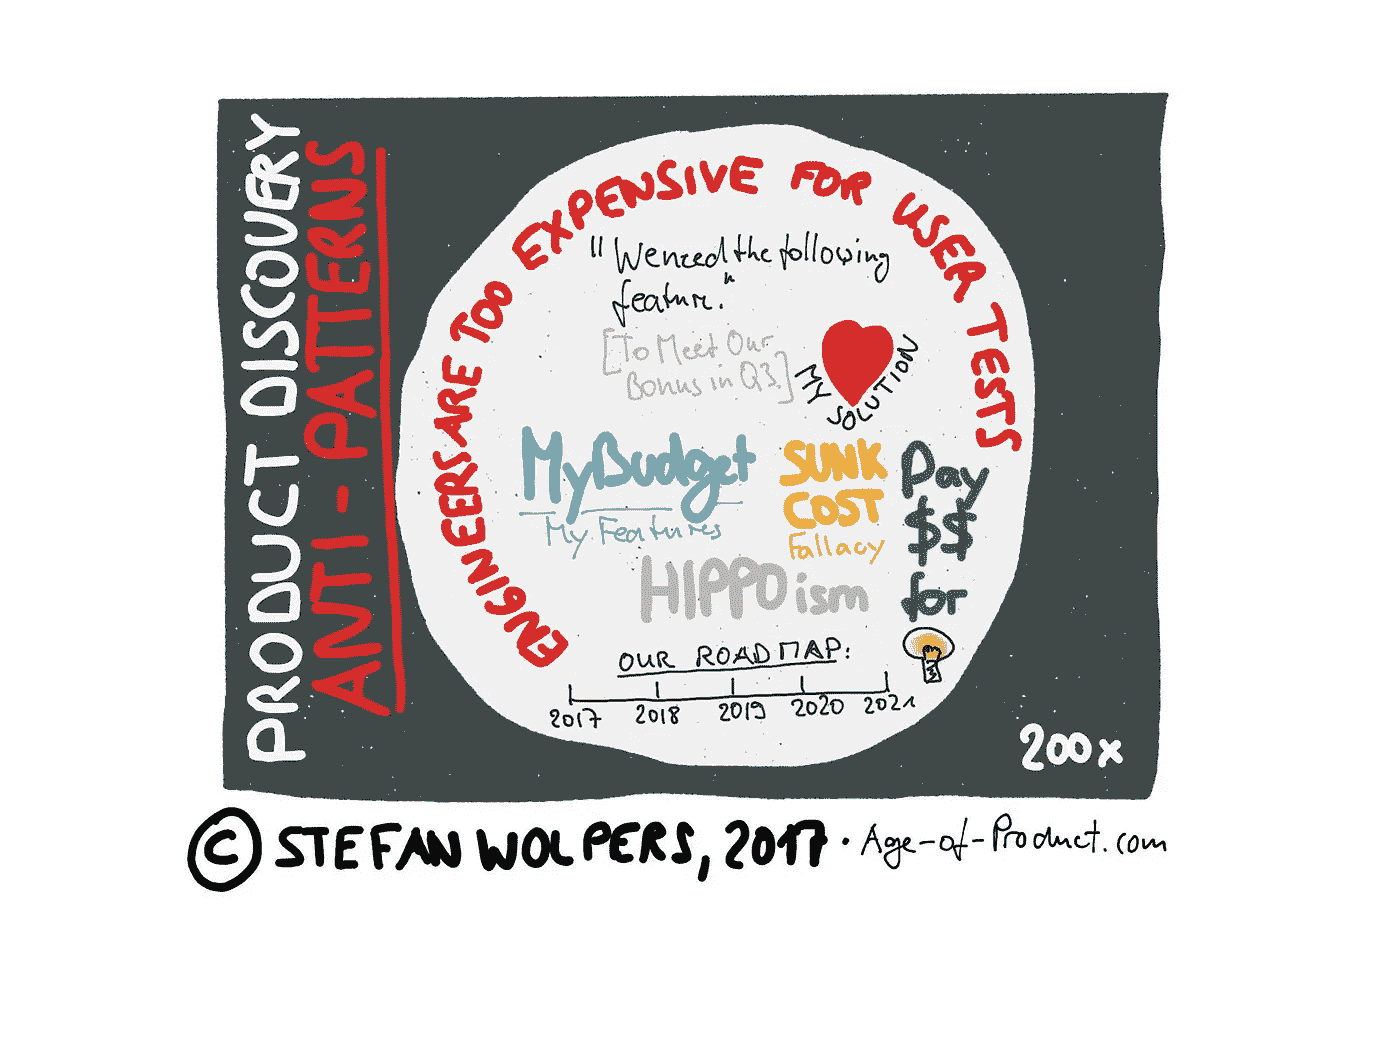 PRODUCT DISCOVERY
ANTI-PATTERNS
ENGINEERS ARE TOO EXPENSIVE FOR USER TESTS
"We need the following
feature."
[To Meet Our
Bonus in Q3.]
MY SOLUTION
My Budget
My Features
SUNK
COST
Fallacy
Pay
$$
for
HIPPOism
OUR ROADMAP:
2017 2018 2019 2020 2021
200x
© STEFAN WOLPERS, 2017 · Age-of-Product.com